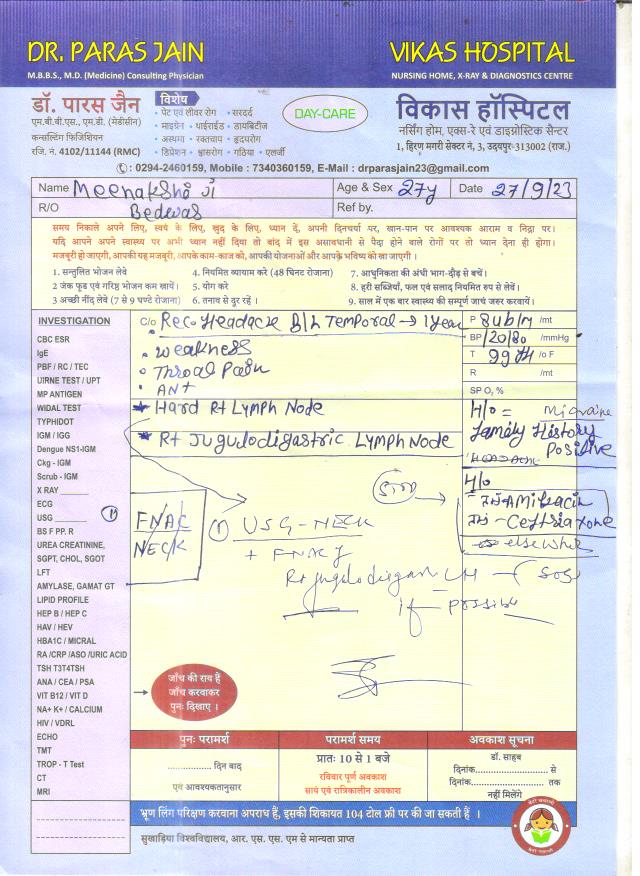 DR. PARAS JAIN
M.B.B.S., M.D. (Medicine) Consulting Physician
VIKAS HOSPITAL
NURSING HOME, X-RAY & DIAGNOSTICS CENTRE
डॉ. पारस जैन
एम.बी.बी.एस., एम.डी. (मेडीसीन)
कन्सल्टिंग फिजिशियन
रजि. नं. 4102/11144 (RMC)
विशेष
• पेट एवं लीवर रोग • सरदर्द
• माइग्रेन • थाईराईड • डायबिटीज
• अस्थमा • रक्तचाप • हृदयरोग
• डिप्रेशन • श्वासरोग • गठिया • एलर्जी
DAY-CARE
विकास हॉस्पिटल
नर्सिंग होम, एक्स-रे एवं डाइग्नोस्टिक सेन्टर
1, हिरण मगरी सेक्टर नं, 3, उदयपुर-313002 (राज.)
: 0294-2460159, Mobile : 7340360159, E-Mail : drparasjain23@gmail.com
Name Meenakshi ji Age & Sex 27y Date 27/9/23
R/O Bedwas Ref by.
समय निकाले अपने लिए, स्वयं के लिए, खुद के लिए, ध्यान दें, अपनी दिनचर्या पर, खान-पान पर आवश्यक आराम व निद्रा पर।
यदि आपने अपने स्वास्थ्य पर अभी ध्यान नहीं दिया तो बाद में इस असावधानी से पैदा होने वाले रोगों पर तो ध्यान देना ही होगा।
मजबूरी हो जाएगी, आपकी यह मजबूरी, आपके काम-काज को, आपकी योजनाओं और आपके भविष्य को खा जाएगी।
1. सन्तुलित भोजन लेवे 4. नियमित व्यायाम करे (48 मिनट रोजाना) 7. आधुनिकता की अंधी भाग-दौड़ से बचें।
2 जंक फूड एवं गरिष्ठ भोजन कम खायें। 5. योग करे 8. हरी सब्जियां, फल एवं सलाद नियमित रुप से लेवें।
3 अच्छी नींद लेवे (7 से 9 घण्टे रोजाना) 6. तनाव से दूर रहें। 9. साल में एक बार स्वास्थ्य की सम्पूर्ण जाचं जरुर करवायें।
INVESTIGATION
CBC ESR
IgE
PBF / RC / TEC
UIRNE TEST / UPT
MP ANTIGEN
WIDAL TEST
TYPHIDOT
IGM / IGG
Dengue NS1-IGM
Ckg - IGM
Scrub - IGM
X RAY
ECG
USG
BS F PP. R
UREA CREATININE,
SGPT, CHOL, SGOT
LFT
AMYLASE, GAMAT GT
LIPID PROFILE
HEP B / HEP C
HAV / HEV
HBA1C / MICRAL
RA /CRP /ASO /URIC ACID
TSH T3T4TSH
ANA / CEA / PSA
VIT B12 / VIT D
NA+ K+ / CALCIUM
HIV / VDRL
ECHO
TMT
TROP - T Test
CT
MRI
C/o Rec. Headache B/L Temporal → 1 year
• Weakness
• Throat Pain
• AN+
* Hard Rt Lymph Node
* Rt Jugulodigastric Lymph Node
P 84 b/m /mt
BP 120/80 /mmHg
T 99 /o F
R /mt
SP O2 %
H/o = Migraine
Family History
Positive
Headache
H/o
Amikacin
Ceftriaxone
elsewhere
FNAC
NECK
① USG-NECK
+ FNAC
Rt jugulodigas LN
if possible
जाँच की राय हैं
जाँच करवाकर
पुनः दिखाए।
पुनः परामर्श
................ दिन बाद
एवं आवश्यकतानुसार
परामर्श समय
प्रातः 10 से 1 बजे
रविवार पूर्ण अवकाश
सायं एवं रात्रिकालीन अवकाश
अवकाश सूचना
डॉ. साहब
दिनांक........................ से
दिनांक........................ तक
नहीं मिलेंगे
भ्रूण लिंग परिक्षण करवाना अपराध हैं, इसकी शिकायत 104 टोल फ्री पर की जा सकती हैं ।
सुखाड़िया विश्वविद्यालय, आर. एस. एस. एम से मान्यता प्राप्त